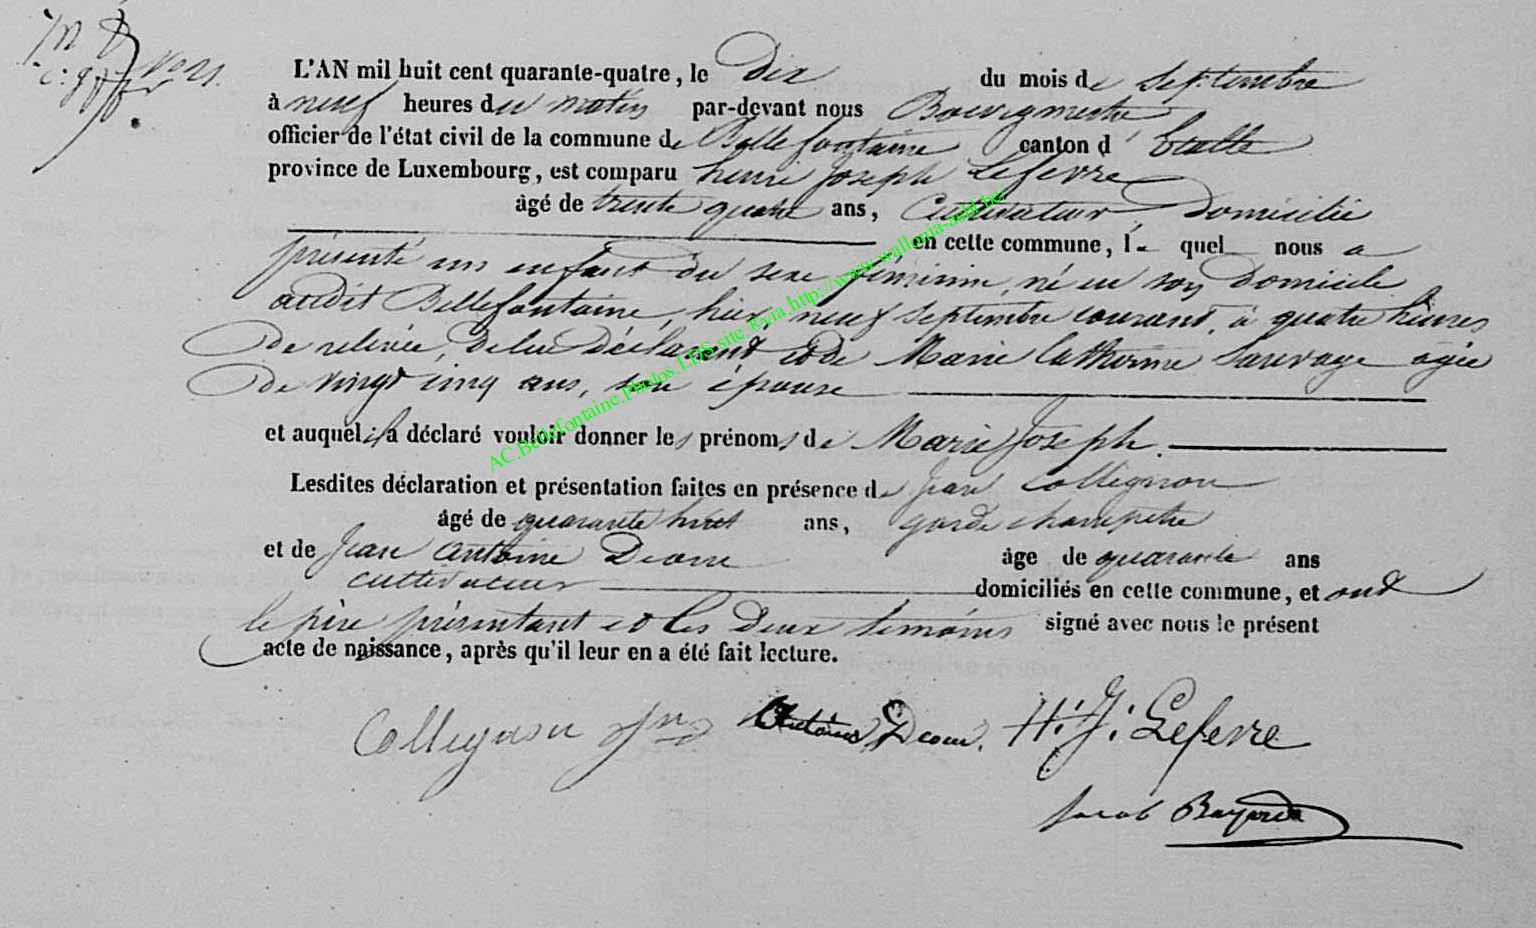 L'AN mil huit cent quarante-quatre, le Dix du mois de Septembre
à neuf heures du matin par-devant nous Bourgmestre
officier de l'état civil de la commune de Bellefontaine canton d' Etalle
province de Luxembourg, est comparu henri Joseph Lefevre
âgé de trente quatre ans, Cultivateur Domicilié
en cette commune, le quel nous a
présenté un enfant du sexe féminin, né en son domicile
audit Bellefontaine, hier, neuf Septembre courant, à quatre heures
de relevée de lui déclarant et de Marie Catherine Sauvage agée
de vingt cinq ans, son épouse
et auquel il a déclaré vouloir donner les prénoms de Marie Joseph.
Lesdites déclaration et présentation faites en présence de Jean Collignon
âgé de quarante huit ans, garde champetre
et de Jean Antoine Deom âge de quarante ans
cultivateur domiciliés en cette commune, et ont
le père présentant et les deux témoins signé avec nous le présent
acte de naissance, après qu'il leur en a été fait lecture.
Collignon Jn Antoine Deom. H. J. Lefevre
Jacob Bayard
AC.Bellefontaine.Photos.LDS.site.®via.http://www.wallonia-asbl.be/